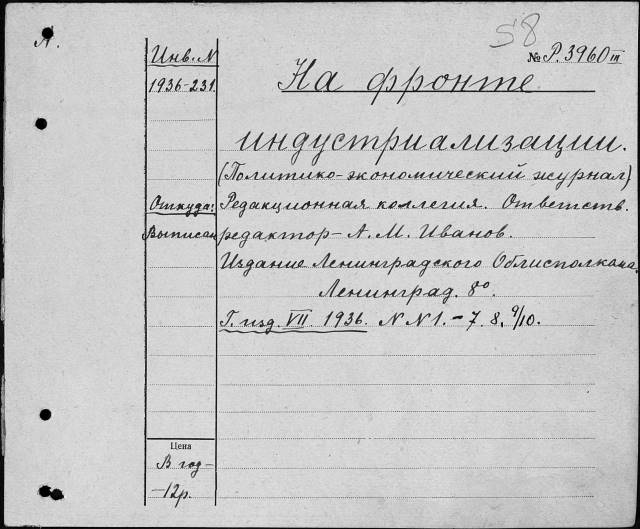 А.
58
№ Р.3960 III
Инв. N
1936-231.
На фронте
индустриализации.
(Политико-экономический журнал)
Откуда: Редакционная коллегия. Ответств.
Выписан редактор - А. М. Иванов.
Издание Ленинградского Облисполкома.
Ленинград. 8º.
Г. изд. VII. 1936. N N 1. - 7. 8. 9/10.
Цена
В год -
-12р.